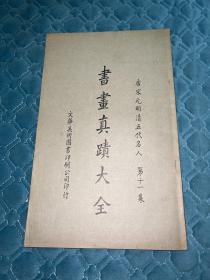 唐宋元明清五代名人 第十一集
書畫真蹟大全
文華美術圖書印刷公司印行